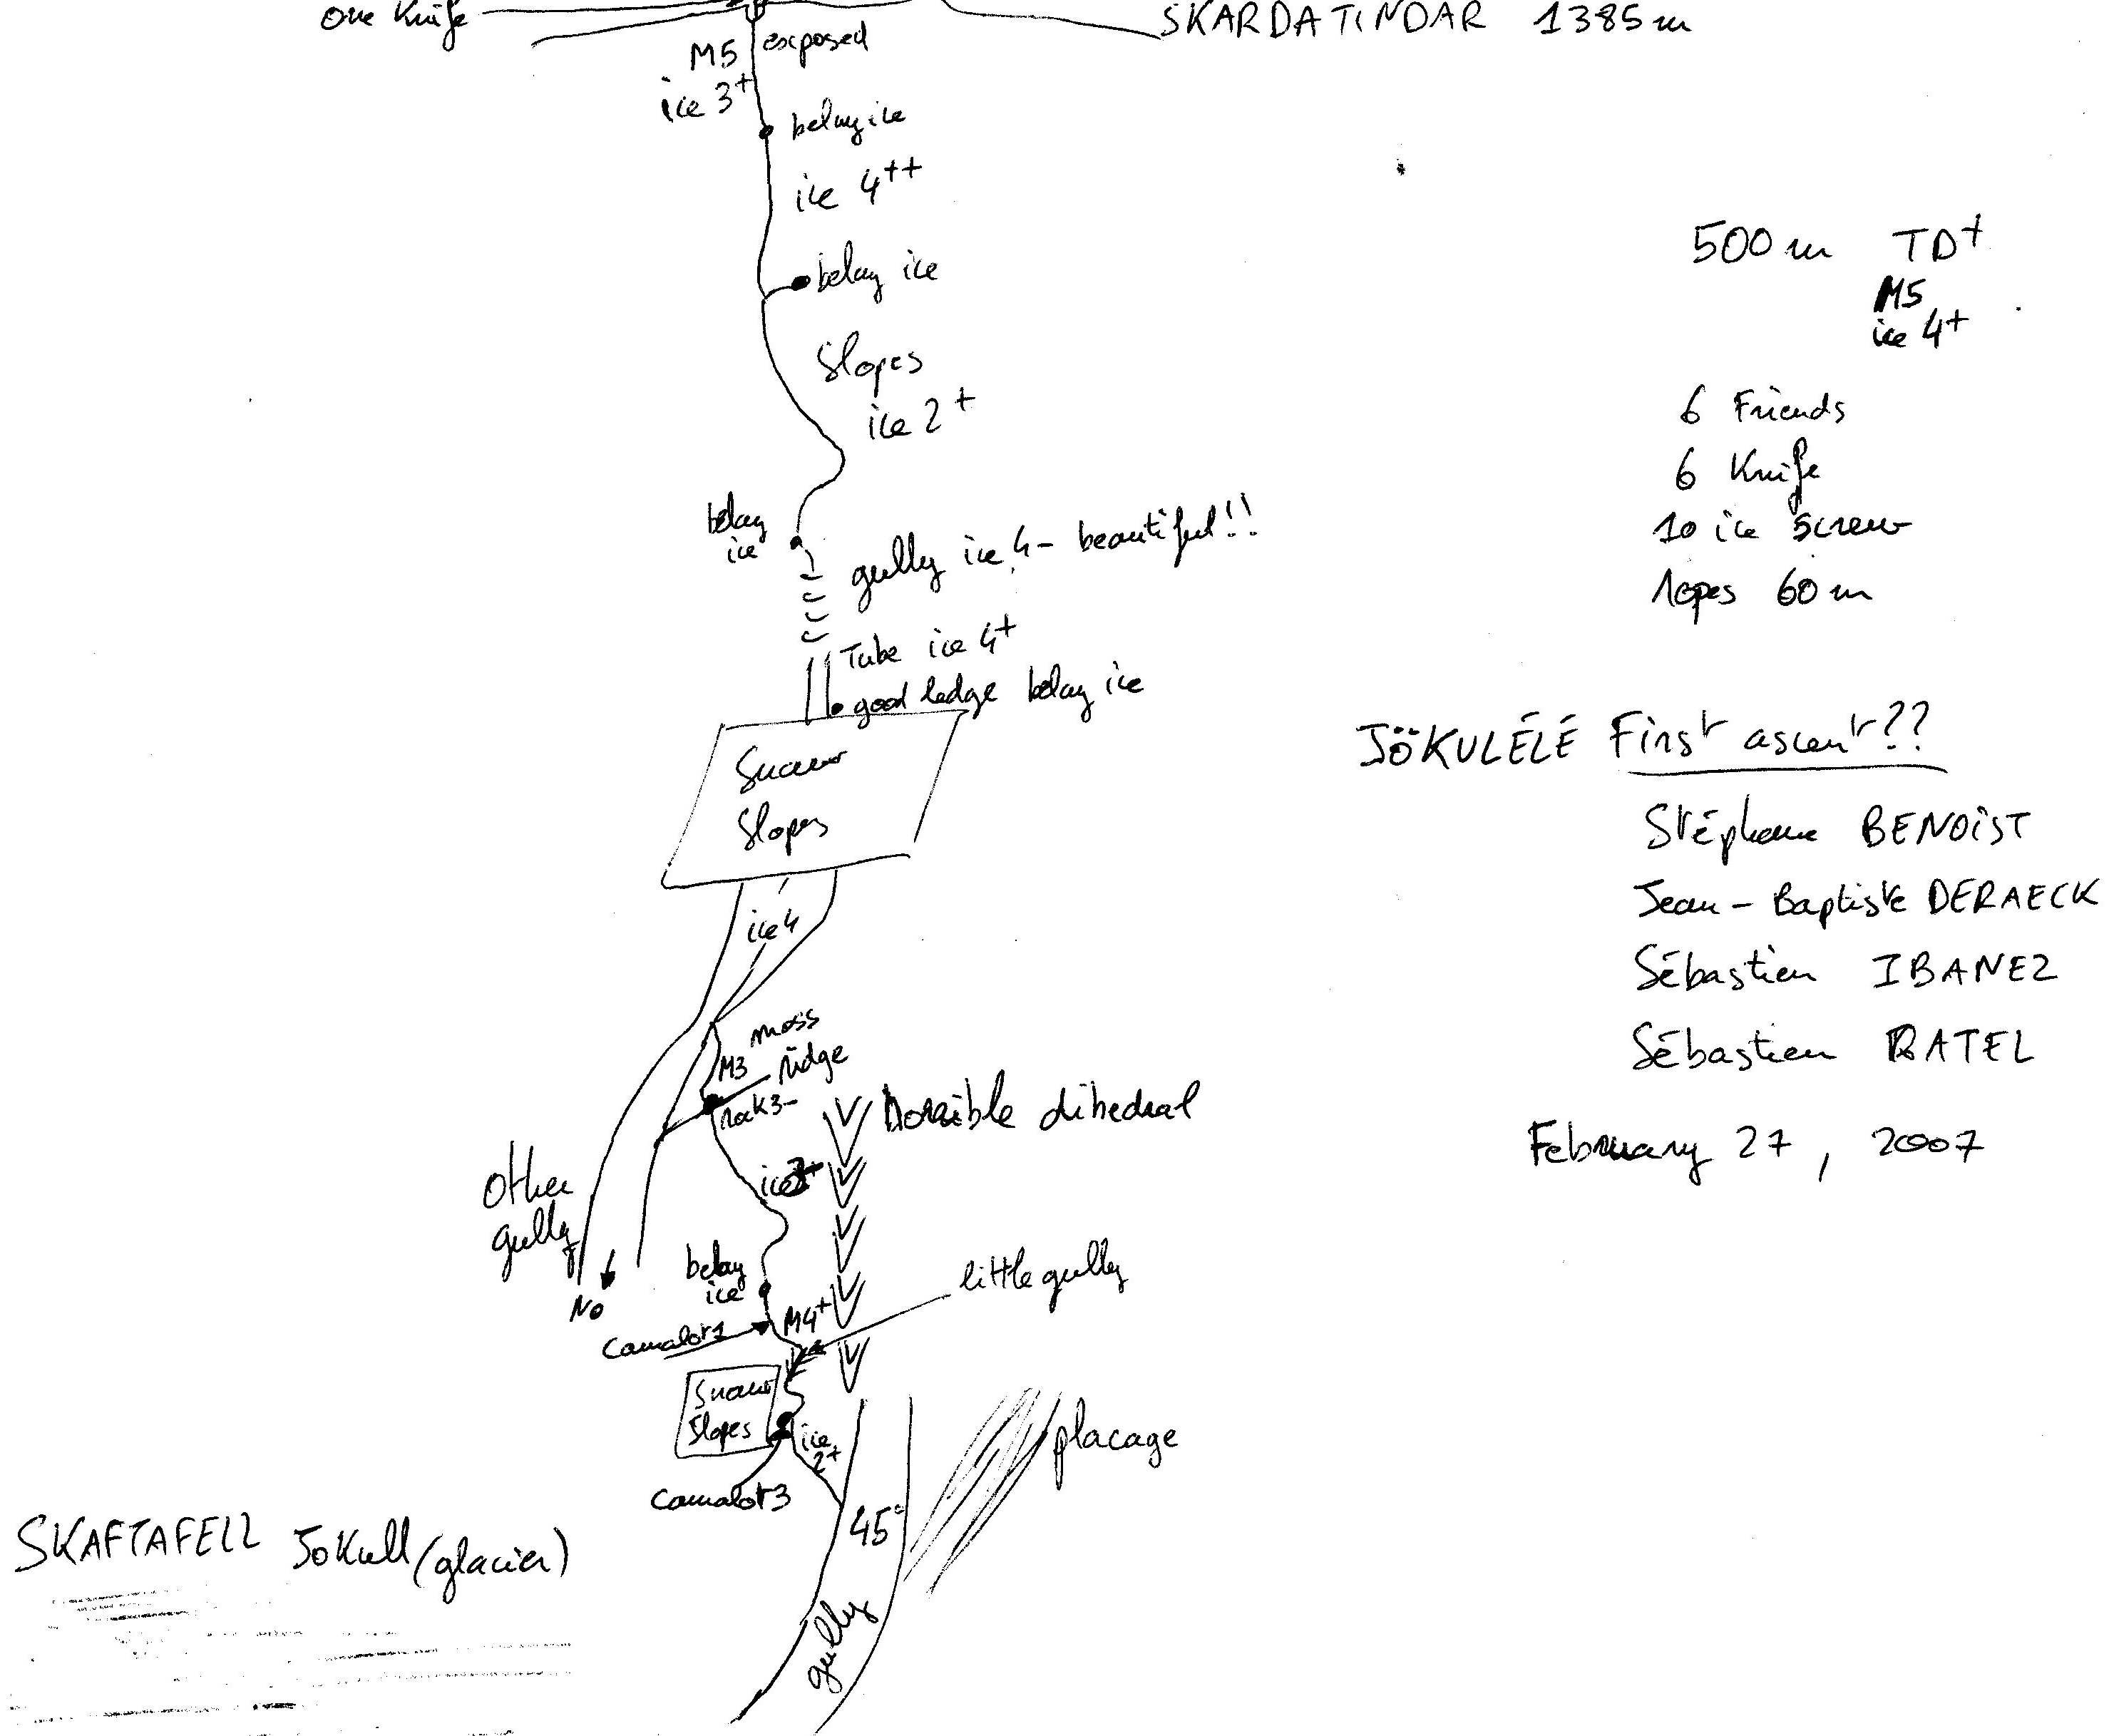 One Knife
SKARDATINDAR 1385m
M5 exposed
ice 3+
belay ice
ice 4++
belay ice
Slopes
ice 2+
belay
ice
gully ice 4- beautiful!!
Tube ice 4+
good ledge belay ice
Snow
Slopes
ice 4
moss
M3 ridge
rock 3-
Horrible dihedral
ice
Other
gully
No
belay
ice
M4+
little gully
Camalot 1
Snow
Slopes
ice
2+
Camalot 3
placage
45°
gully
SKAFTAFELL Jokull (glacier)
500m TD+
M5
ice 4+
6 Friends
6 Knife
10 ice screw
ropes 60m
JÖKULÉLÉ First ascent??
Stéphane BENOIST
Jean-Baptiste DERAECK
Sébastien IBANEZ
Sébastien RATEL
February 27, 2007